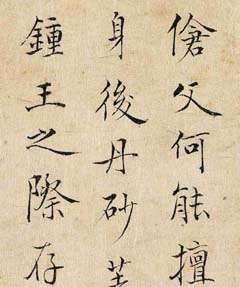 傖父何能擅
身後丹砂
鍾王之際存